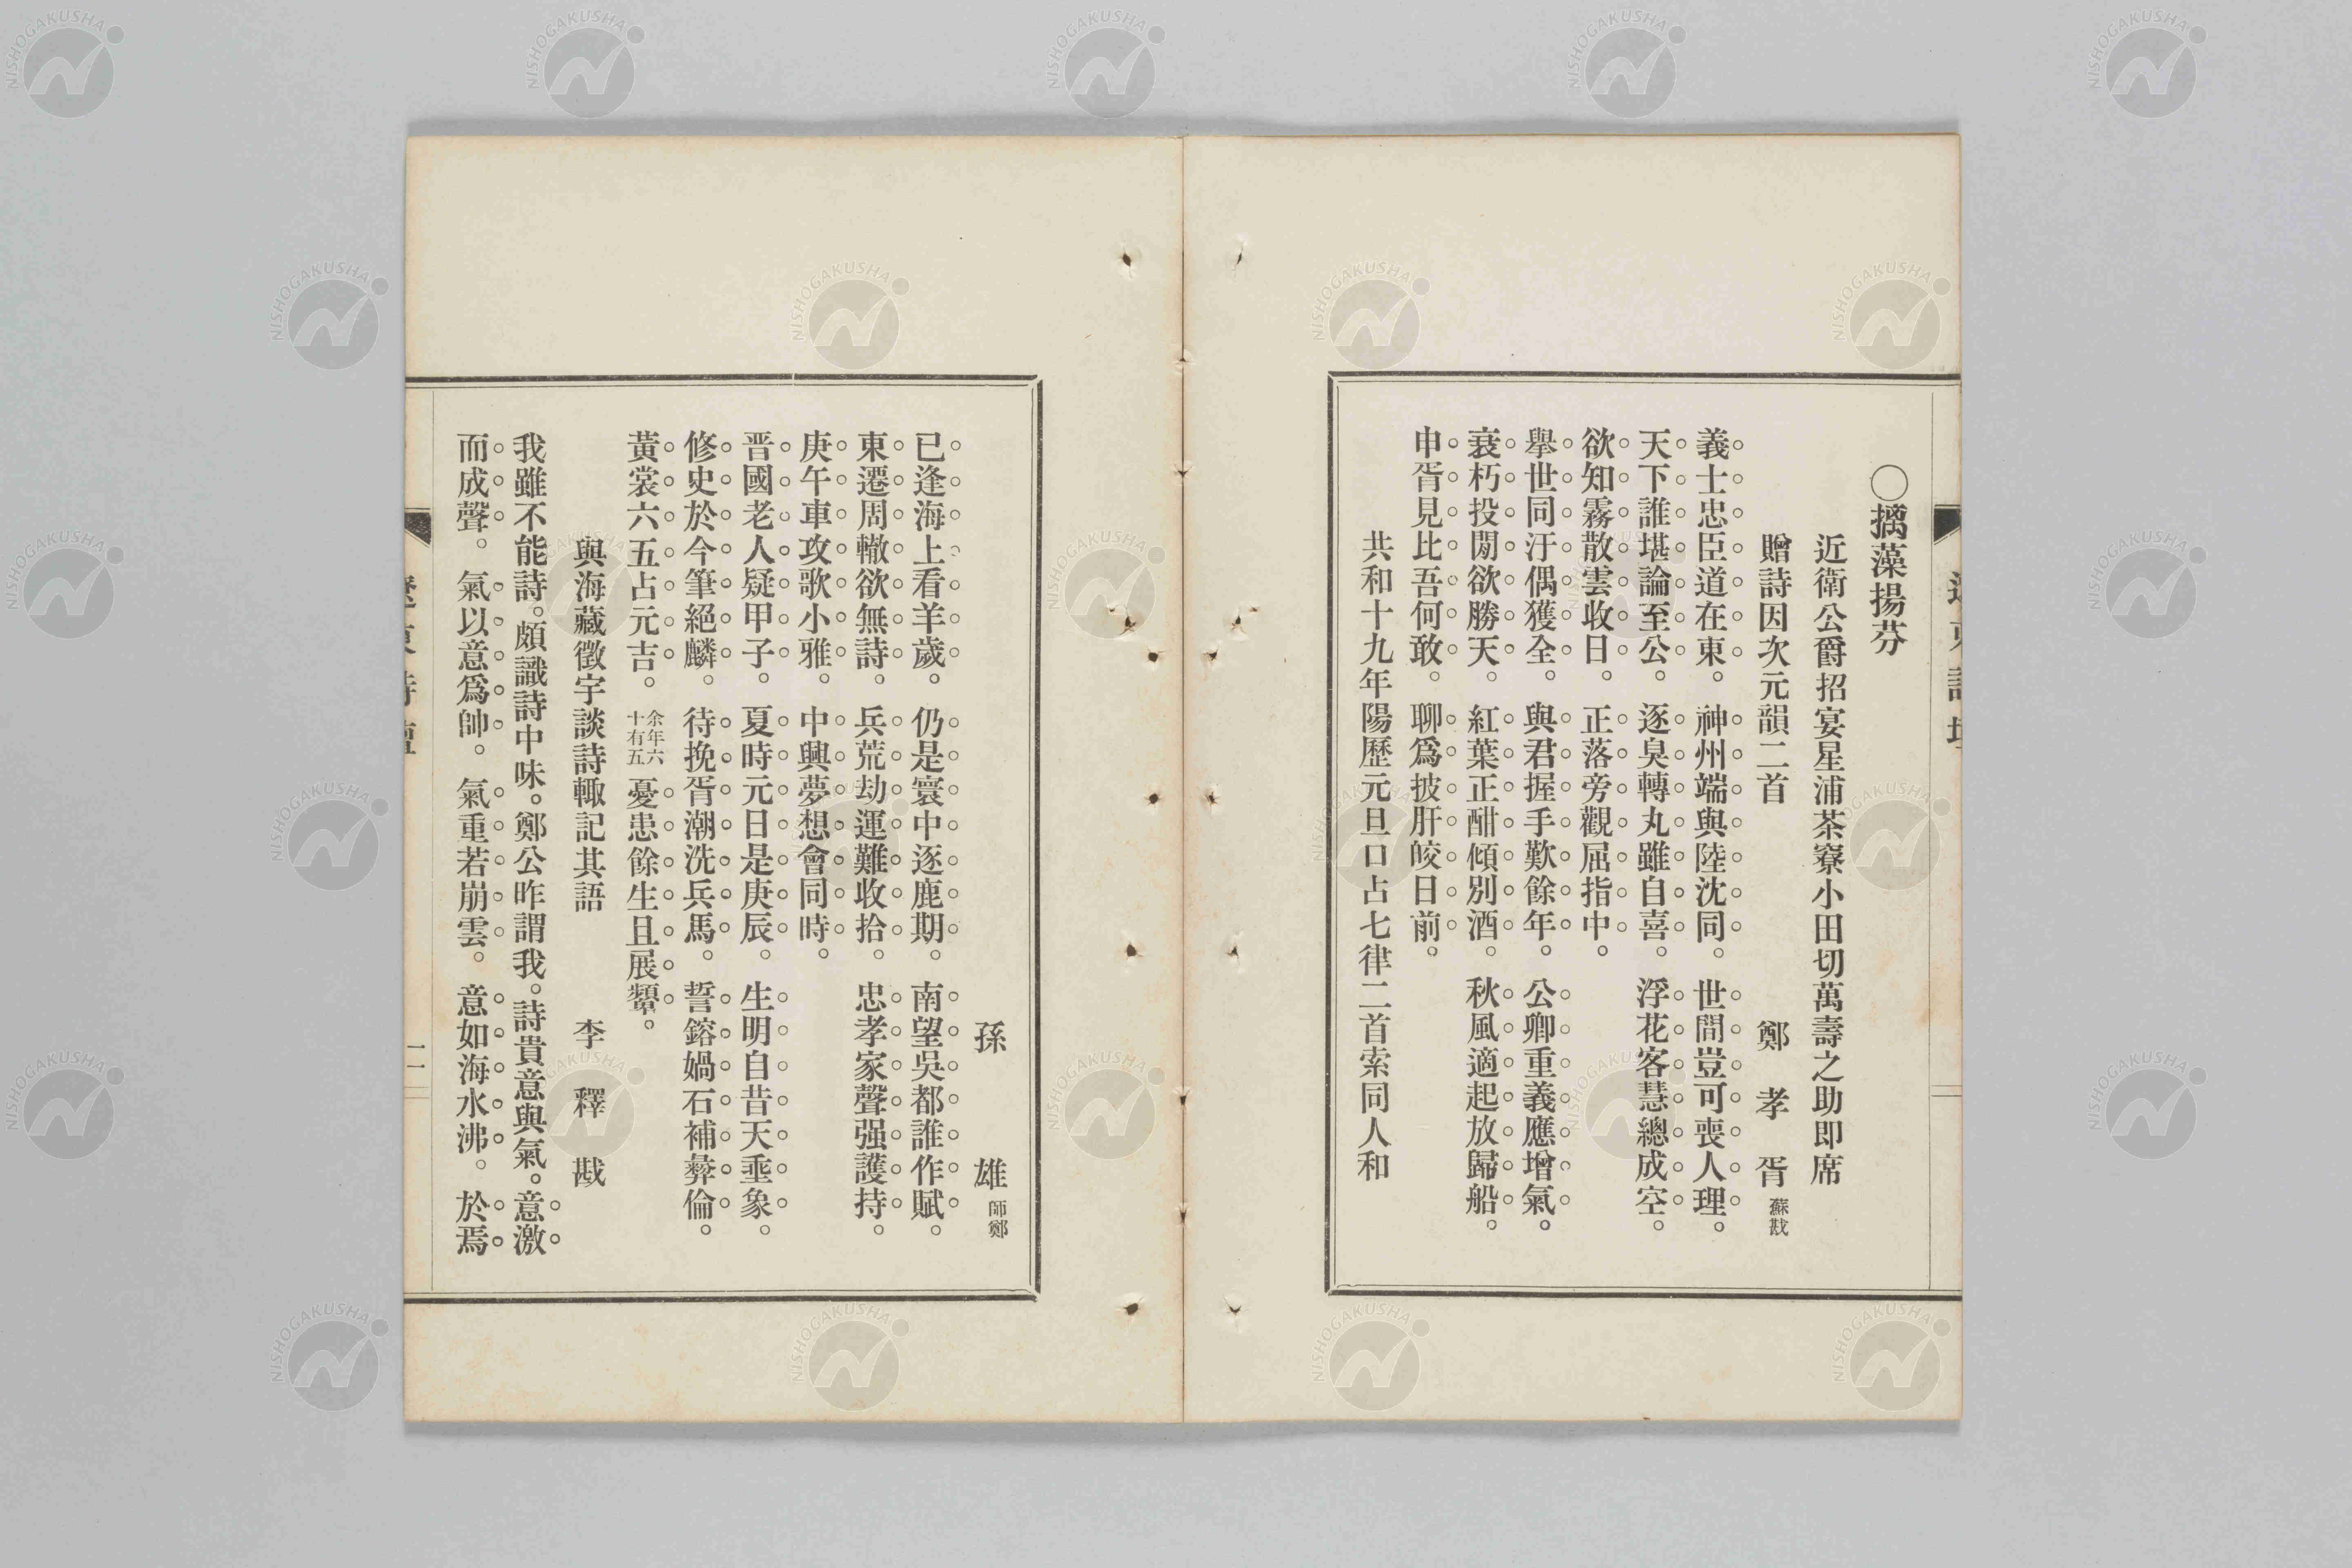 〇摛藻揚芬
近衛公爵招宴星浦茶寮小田切萬壽之助即席
贈詩因次元韻二首　鄭孝胥蘇戡
義士忠臣道在東。神州端與陸沈同。世間豈可喪人理。
天下誰堪論至公。逐臭轉丸雖自喜。浮花客慧總成空。
欲知霧散雲收日。正落旁觀屈指中。
擧世同汙偶獲全。與君握手歎餘年。公卿重義應增氣。
衰朽投閒欲勝天。紅葉正酣傾別酒。秋風適起放歸船。
申胥見比吾何敢。聊爲披肝皎日前。
共和十九年陽歷元旦口占七律二首索同人和
孫雄師鄭
已逢海上看羊歲。仍是寰中逐鹿期。南望吳都誰作賦。
東遷周轍欲無詩。兵荒劫運難收拾。忠孝家聲强護持。
庚午車攻歌小雅。中興夢想會同時。
晋國老人疑甲子。夏時元日是庚辰。生明自昔天垂象。
修史於今筆絕麟。待挽胥潮洗兵馬。誓鎔媧石補彝倫。
黃裳六五占元吉。余年六十有五憂患餘生且展顰。
與海藏徵宇談詩輙記其語　李釋戡
我雖不能詩。頗識詩中味。鄭公昨謂我。詩貴意與氣。意激
而成聲。氣以意爲帥。氣重若崩雲。意如海水沸。於焉
二
NISHOGAKUSHA